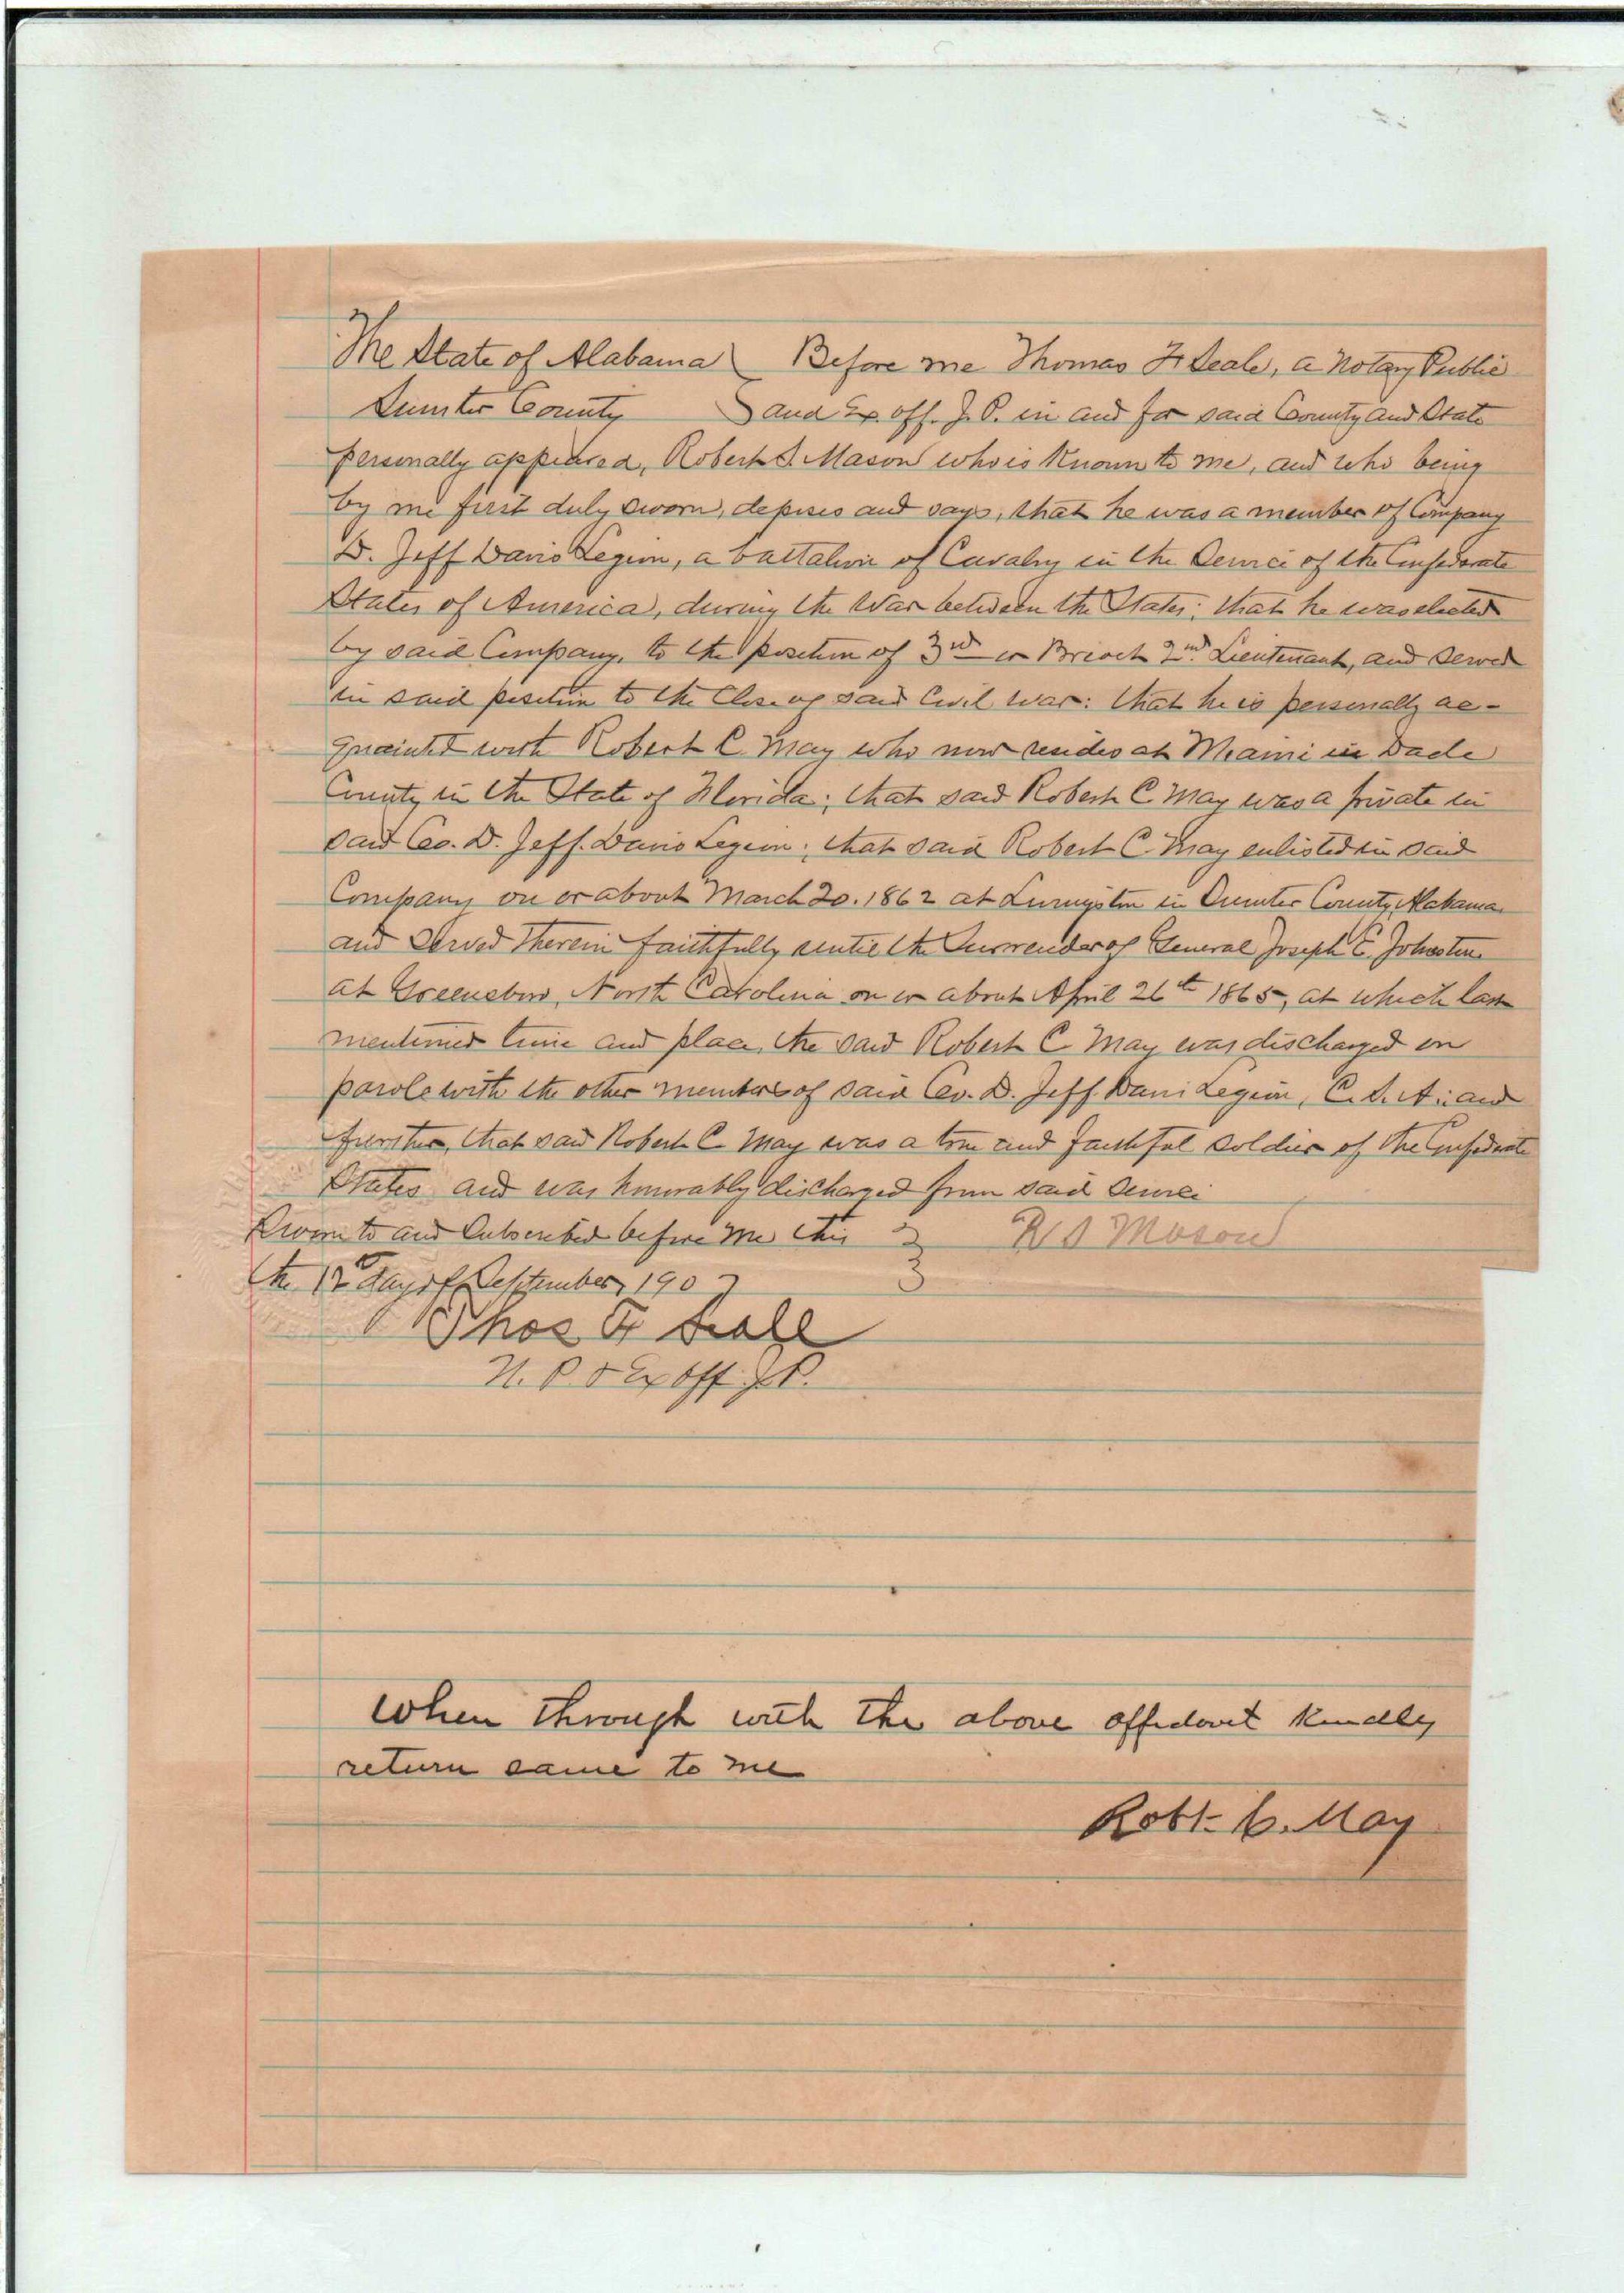 The State of Alabama } Before me Thomas F Seale, a Notary Public
Sumter County } and Ex. off. J. P. in and for said County and State
personally appeared, Robert S. Mason who is Known to me, and who being
by me first duly sworn, deposes and says, that he was a member of Company
D. Jeff Davis Legion, a battalion of Cavalry in the Service of the Confederate
States of America, during the War between the States: that he was elected
by said Company, to the position of 3rd or 2nd Lieutenant, and served
in said position to the Close of said Civil War: that he is personally ac-
quainted with Robert C May who now resides at Miami in Dade
County in the State of Florida; that said Robert C May was a private in
said Co. D. Jeff. Davis Legion; that said Robert C. May enlisted in said
Company on or about March 20. 1862 at Livingston in Sumter County, Alabama
and Served Therein faithfully until the Surrender of General Joseph E. Johnston
at Greensboro, North Carolina on or about April 26th 1865, at which last
mentioned time and place, the said Robert C May was discharged on
parole with the other members of said Co. D. Jeff Davis Legion, C. S. A: and
further, that said Robert C May was a true and faithful soldier of the Confederate
States and was honorably discharged from said Service
Sworn to and Subscribed before me this } R S Mason
the 12th day of September, 1907 }
Thos F Seale
N. P. & Ex off J. P.
When through with the above affidavit kindly
return same to me
Robt. C. May